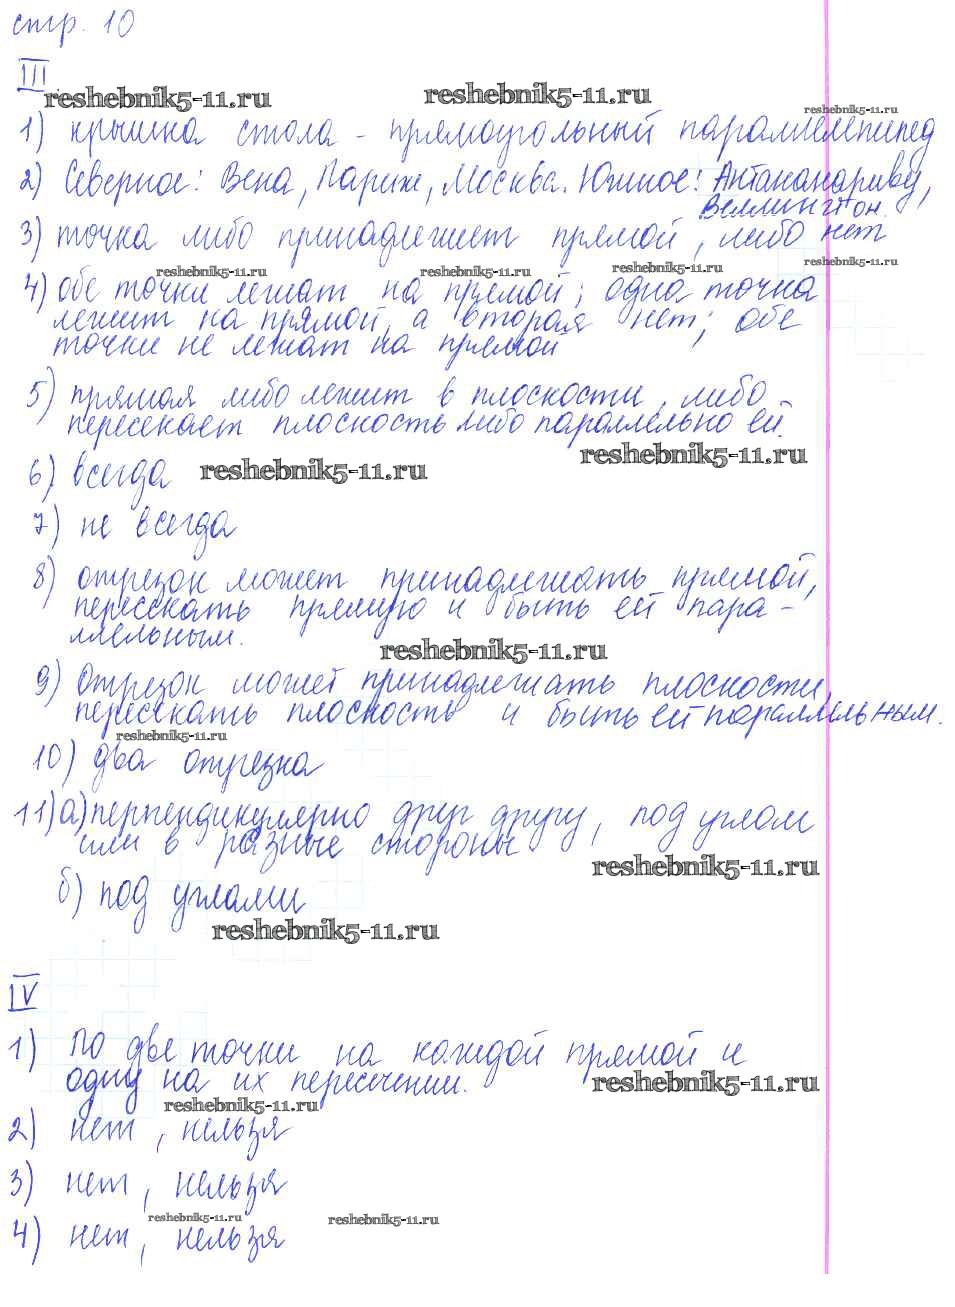 стр. 10
III
reshebnik5-11.ru reshebnik5-11.ru
reshebnik5-11.ru
1) крышка стола - прямоугольный параллелепипед
2) Северное: Вена, Париж, Москва. Южное: Антананариву,
Веллингтон.
3) точка либо принадлежит прямой, либо нет
reshebnik5-11.ru reshebnik5-11.ru reshebnik5-11.ru reshebnik5-11.ru
4) обе точки лежат на прямой; одна точка
лежит на прямой, а вторая нет; обе
точки не лежат на прямой
5) прямая либо лежит в плоскости, либо
пересекает плоскость либо параллельно ей.
6) всегда reshebnik5-11.ru reshebnik5-11.ru
7) не всегда
8) отрезок может принадлежать прямой,
пересекать прямую и быть ей пара-
ллельным.
reshebnik5-11.ru
9) Отрезок может принадлежать плоскости,
пересекать плоскость и быть ей параллельным.
reshebnik5-11.ru
10) два отрезка
11) а) перпендикулярно друг другу, под углом
или в разные стороны
reshebnik5-11.ru
б) под углами
reshebnik5-11.ru
IV
1) По две точки на каждой прямой и
одну на их пересечении.
reshebnik5-11.ru
reshebnik5-11.ru
2) нет, нельзя
3) нет, нельзя
reshebnik5-11.ru reshebnik5-11.ru
4) нет, нельзя